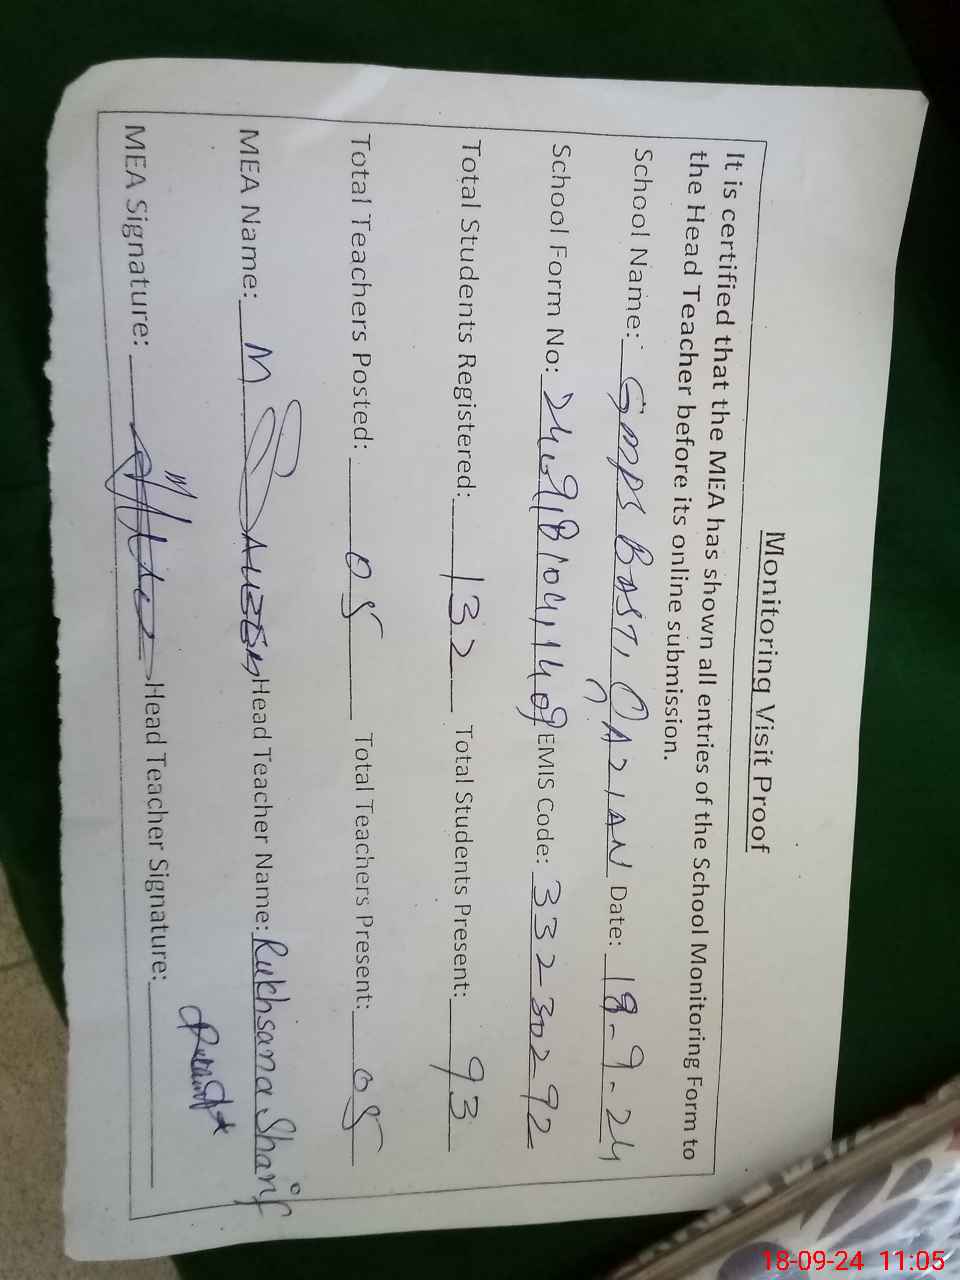 Monitoring Visit Proof
It is certified that the MEA has shown all entries of the School Monitoring Form to
the Head Teacher before its online submission.
School Name: GMPS BASTI QAZIAN Date: 18-9-24
School Form No: EMIS Code: 33230292
Total Students Registered: 132 Total Students Present: 93
Total Teachers Posted: 05 Total Teachers Present: 05
MEA Name: M Head Teacher Name: Rukhsana Sharif
MEA Signature: Head Teacher Signature:
18-09-24 11:05